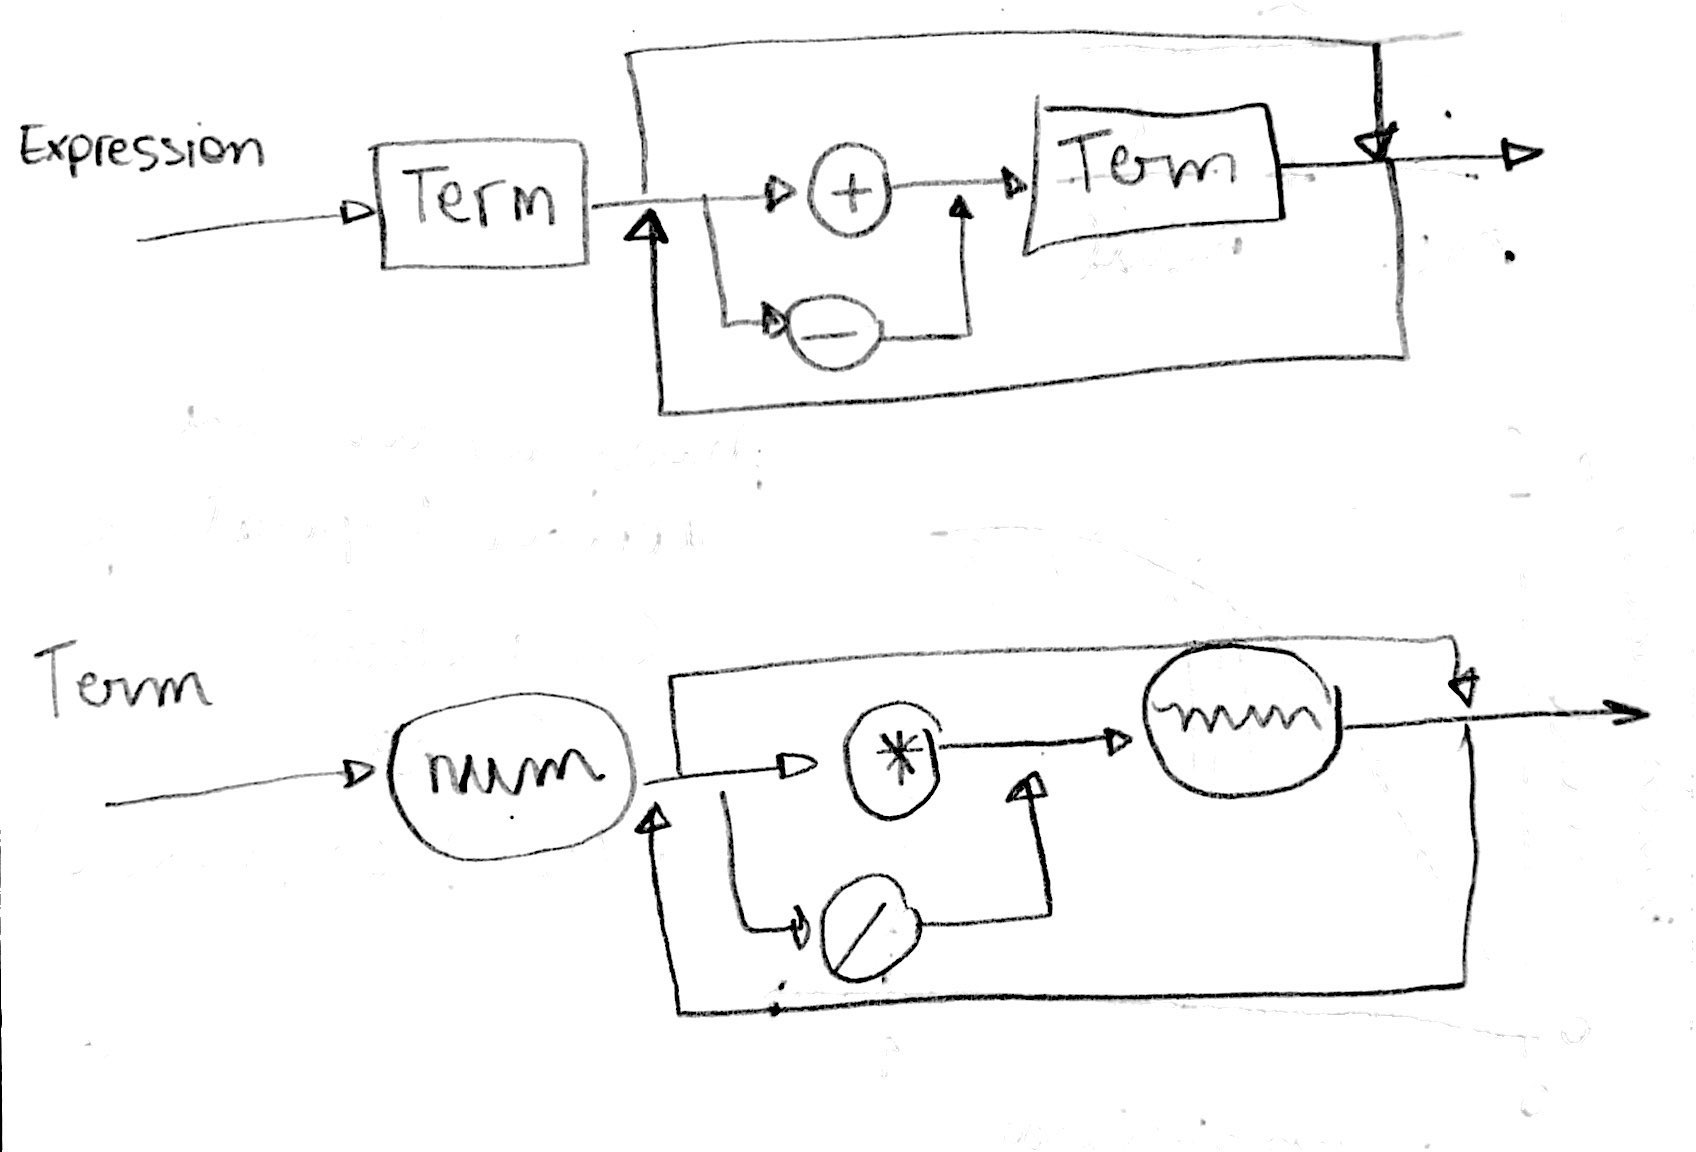 Expression
Term + Term
−
Term
num * num
/